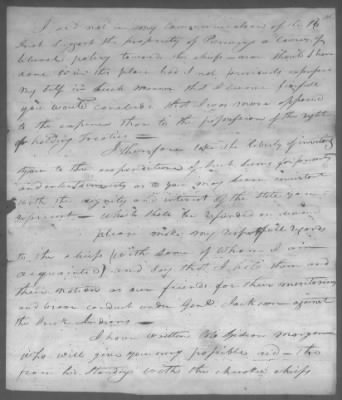 I did not in my Communication of the 16
Inst suggest the propriety of Pursuing a course of
liberal policy toward the chiefs — nor should I have
done so in this place had I not previously expressed
my self in such manner that I
you would conclude that I was more opposed
to the expence than to the possession of the right
of holding Treaties —
I therefore take the liberty of
you to the expenditure of such sums for presents
and as to you may seem consistent
with the dignity and interest of the State you
represent — which shall be refunded on
please make my respects
to the chiefs (with some of whom I am
acquainted) and say that I hold them and
their nation as our friends for their meritorious
and brave conduct under Genl. Jackson against
the Creek Indians —
I have written Col. Gideon Morgan
who will give you every possible aid —
from his standing with the cherokee chiefs